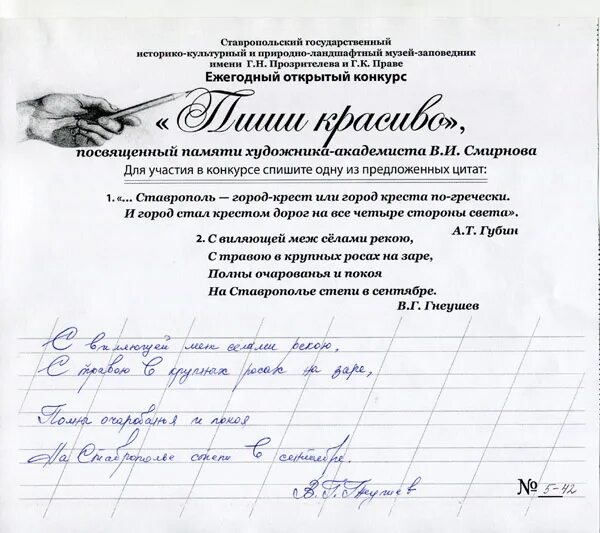 Ставропольский государственный
историко-культурный и природно-ландшафтный музей-заповедник
имени Г.Н. Прозрителева и Г.К. Праве
Ежегодный открытый конкурс
« Пиши красиво»,
посвященный памяти художника-академиста В.И. Смирнова
Для участия в конкурсе спишите одну из предложенных цитат:
1. «... Ставрополь — город-крест или город креста по-гречески.
И город стал крестом дорог на все четыре стороны света».
А.Т. Губин
2. С виляющей меж сёлами рекою,
С травою в крупных росах на заре,
Полны очарованья и покоя
На Ставрополье степи в сентябре.
В.Г. Гнеушев
С виляющей меж селами рекою,
С травою в крупных росах на заре,
Полны очарованья и покоя
На Ставрополье степи в сентябре.
В.Г. Гнеушев
№ 5-42